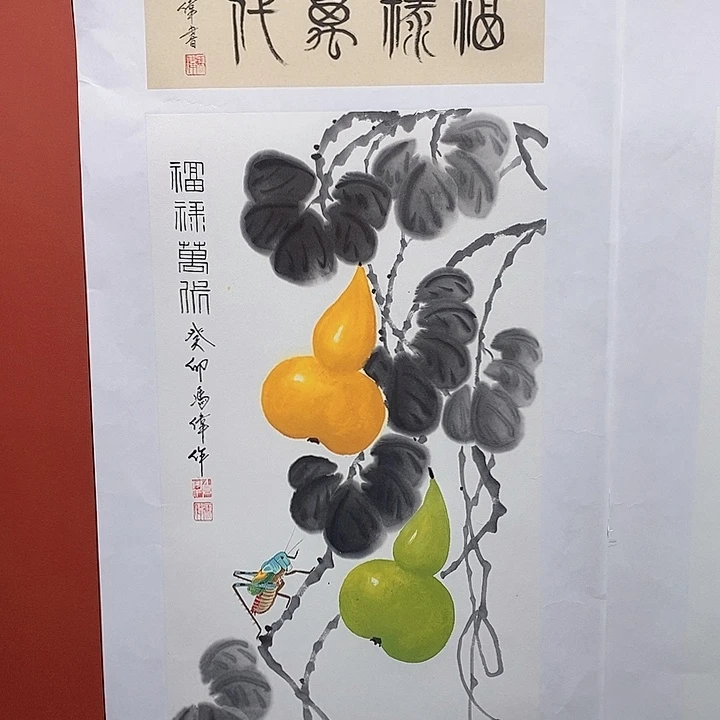 福祿萬代
偉書
福祿萬代
癸卯馮偉作